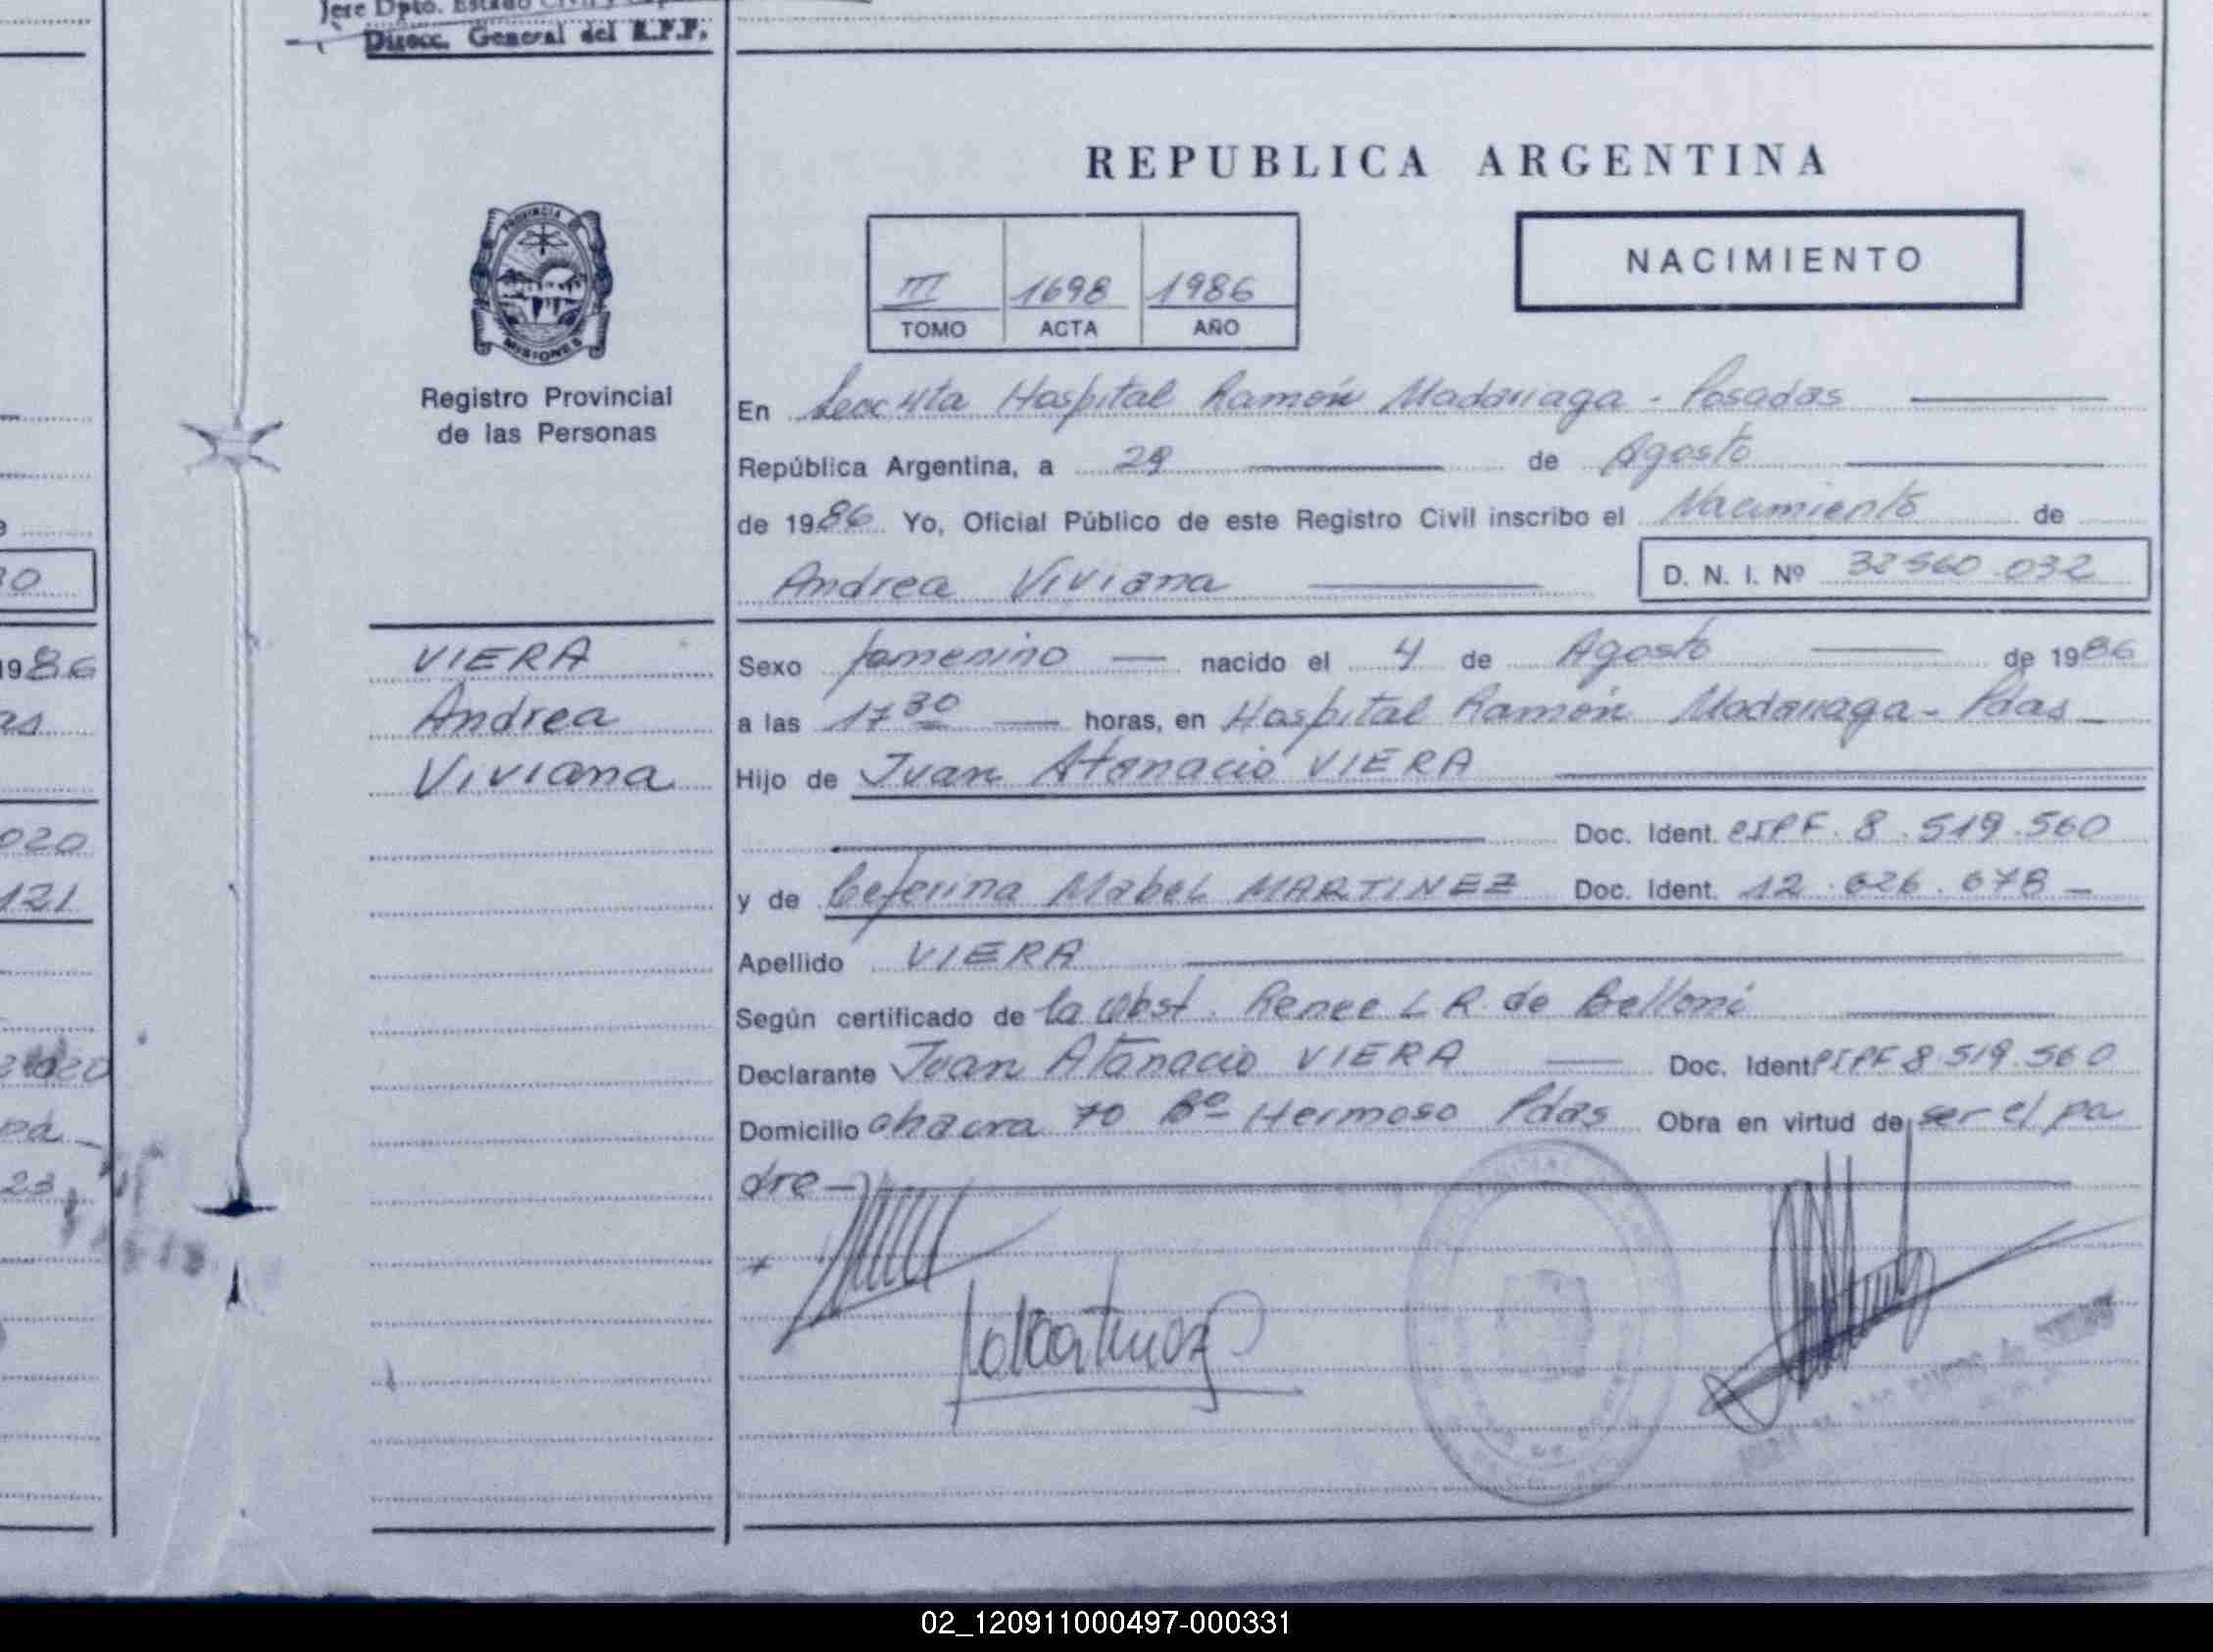 Jefe Dpto. Estado Civil y
Direcc. General del R.P.P.
REPUBLICA ARGENTINA
PROVINCIA
MISIONES
Registro Provincial
de las Personas
III 1698 1986
TOMO ACTA AÑO
NACIMIENTO
En Hospital Ramón Madariaga - Posadas
República Argentina, a 29 de Agosto
de 1986 Yo, Oficial Público de este Registro Civil inscribo el Nacimiento de
Andrea Viviana D. N. I. Nº 32560.032
VIERA
Andrea
Viviana
Sexo femenino nacido el 4 de Agosto de 1986
a las 17 30 horas, en Hospital Ramón Madariaga - Pdas
Hijo de Juan Atanacio VIERA
Doc. Ident. 8.519.560
y de Ceferina Mabel MARTINEZ Doc. Ident. 12.626.678
Apellido VIERA
Según certificado de la Obst. Renee L R. de Belloni
Declarante Juan Atanacio VIERA Doc. Ident 8.519.560
Domicilio chacra 70 Bº Hermoso Pdas Obra en virtud de ser el pa
dre
1986
as
020
121
23
02_120911000497-000331